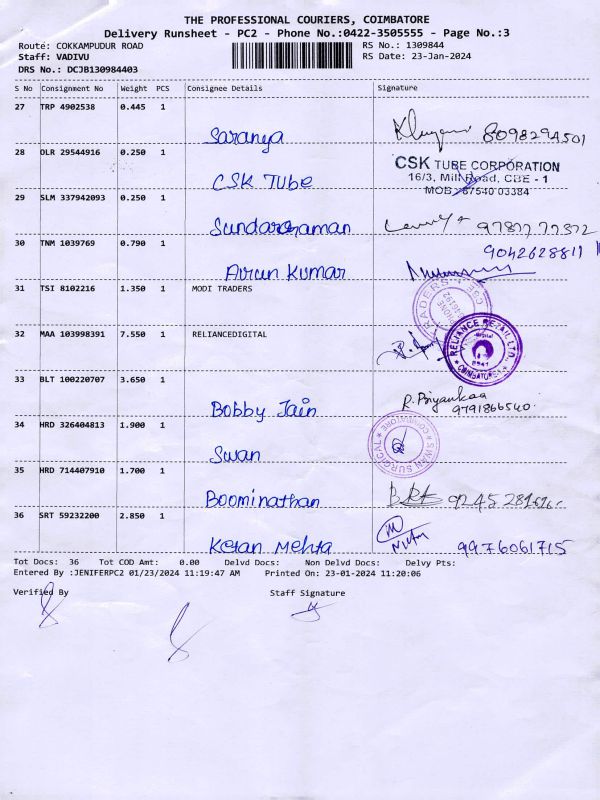 THE PROFESSIONAL COURIERS, COIMBATORE
Delivery Runsheet - PC2 - Phone No.:0422-3505555 - Page No.:3
Route: COKKAMPUDUR ROAD RS No.: 1309844
Staff: VADIVU RS Date: 23-Jan-2024
DRS No.: DCJB130984403
S No Consignment No Weight PCS Consignee Details Signature
27 TRP 4902538 0.445 1
Saranya 8098294501
28 DLR 29544916 0.250 1
CSK Tube
CSK TUBE CORPORATION
16/3, Mill Road, CBE - 1
MOB : 87540 03384
29 SLM 337942093 0.250 1
Sundararaman
30 TNM 1039769 0.790 1 9042628811
Arun Kumar
31 TSI 8102216 1.350 1 MODI TRADERS
TRADERS
CBE - 1
PHONE
32 MAA 103998391 7.550 1 RELIANCEDIGITAL
RELIANCE RETAIL LTD.
COIMBATORE
33 BLT 100220707 3.650 1
Bobby Jain R. Priyankaa
9791866540
34 HRD 326404813 1.900 1
Swan
SWAN SURGICAL
COIMBATORE
35 HRD 714407910 1.700 1
Boominathan
36 SRT 59232200 2.850 1
Ketan Mehta 9976061715
Tot Docs: 36 Tot COD Amt: 0.00 Delvd Docs: Non Delvd Docs: Delvy Pts:
Entered By :JENIFERPC2 01/23/2024 11:19:47 AM Printed On: 23-01-2024 11:20:06
Verified By Staff Signature